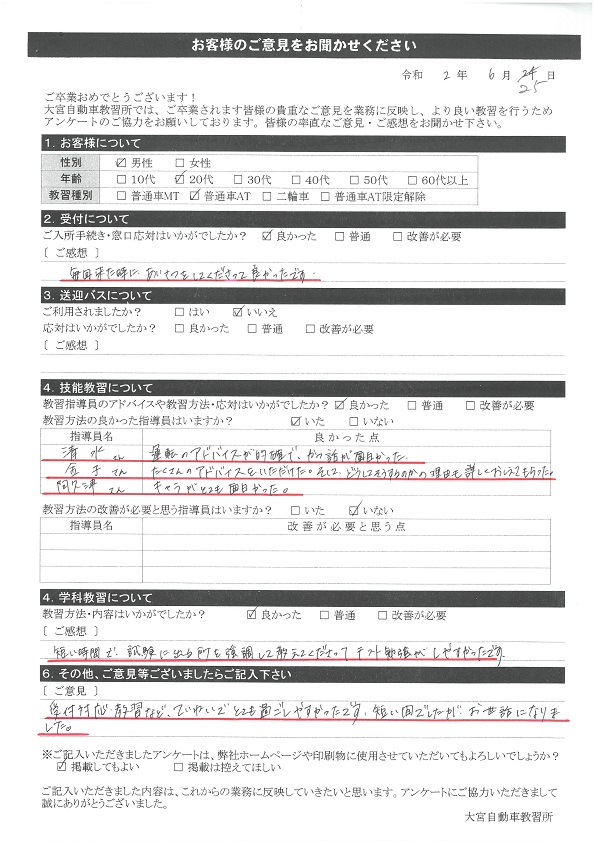 お客様のご意見をお聞かせください
令和 2 年 6 月 25 日
ご卒業おめでとうございます！
大宮自動車教習所では、ご卒業されます皆様の貴重なご意見を業務に反映し、より良い教習を行うため
アンケートのご協力をお願いしております。皆様の率直なご意見・ご感想をお聞かせ下さい。
1. お客様について
性別 ☑ 男性 □ 女性
年齢 □ 10代 ☑ 20代 □ 30代 □ 40代 □ 50代 □ 60代以上
教習種別 □ 普通車MT ☑ 普通車AT □ 二輪車 □ 普通車AT限定解除
2. 受付について
ご入所手続き・窓口応対はいかがでしたか？ ☑ 良かった □ 普通 □ 改善が必要
［ ご感想 ］
毎回来た時に あいさつをしてくださって良かったです.
3. 送迎バスについて
ご利用されましたか？ □ はい ☑ いいえ
応対はいかがでしたか？ □ 良かった □ 普通 □ 改善が必要
［ ご感想 ］
4. 技能教習について
教習指導員のアドバイスや教習方法・応対はいかがでしたか？ ☑ 良かった □ 普通 □ 改善が必要
教習方法の良かった指導員はいますか？ ☑ いた □ いない
指導員名 良かった点
清水さん 運転のアドバイスが的確で、かつ話が面白かった.
金子さん たくさんのアドバイスをいただけた。そして、どうしてそうするのかの理由も詳しくおしえてもらった。
阿久津さん キャラがとても面白かった。
教習方法の改善が必要と思う指導員はいますか？ □ いた ☑ いない
指導員名 改善が必要と思う点
4. 学科教習について
教習方法・内容はいかがでしたか？ ☑ 良かった □ 普通 □ 改善が必要
［ ご感想 ］
短い時間で、試験に出る所を強調して教えてくださって テスト勉強がしやすかったです.
6. その他、ご意見等ございましたらご記入下さい
［ ご意見 ］
受付対応・教習など、ていねいで とても過ごしやすかったです. 短い間でしたが、お世話になりま
した。
※ご記入いただきましたアンケートは、弊社ホームページや印刷物に使用させていただいてもよろしいでしょうか？
☑ 掲載してもよい □ 掲載は控えてほしい
ご記入いただきました内容は、これからの業務に反映していきたいと思います。アンケートにご協力いただきまして
誠にありがとうございました。
大宮自動車教習所